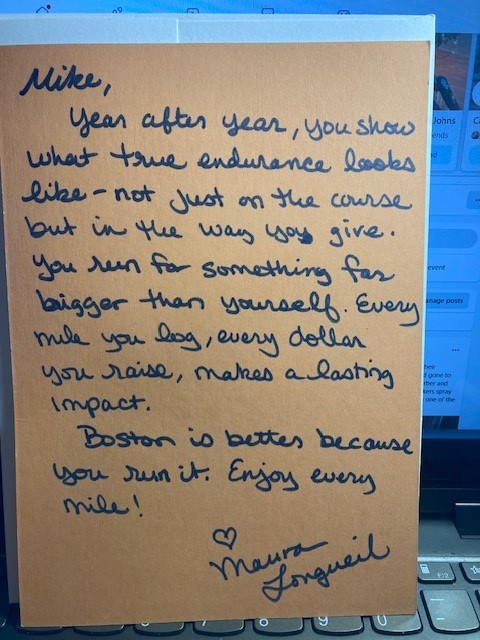 Mike,
Year after year, you show
what true endurance looks
like - not just on the course
but in the way you give.
You run for something far
bigger than yourself. Every
mile you log, every dollar
you raise, makes a lasting
impact.
Boston is better because
you run it. Enjoy every
mile!
♡
Maura
Longueil
Johns
ends
event
anage posts
heir
d gone to
rber and
kers spray
one of the
F12
7
8
9
0